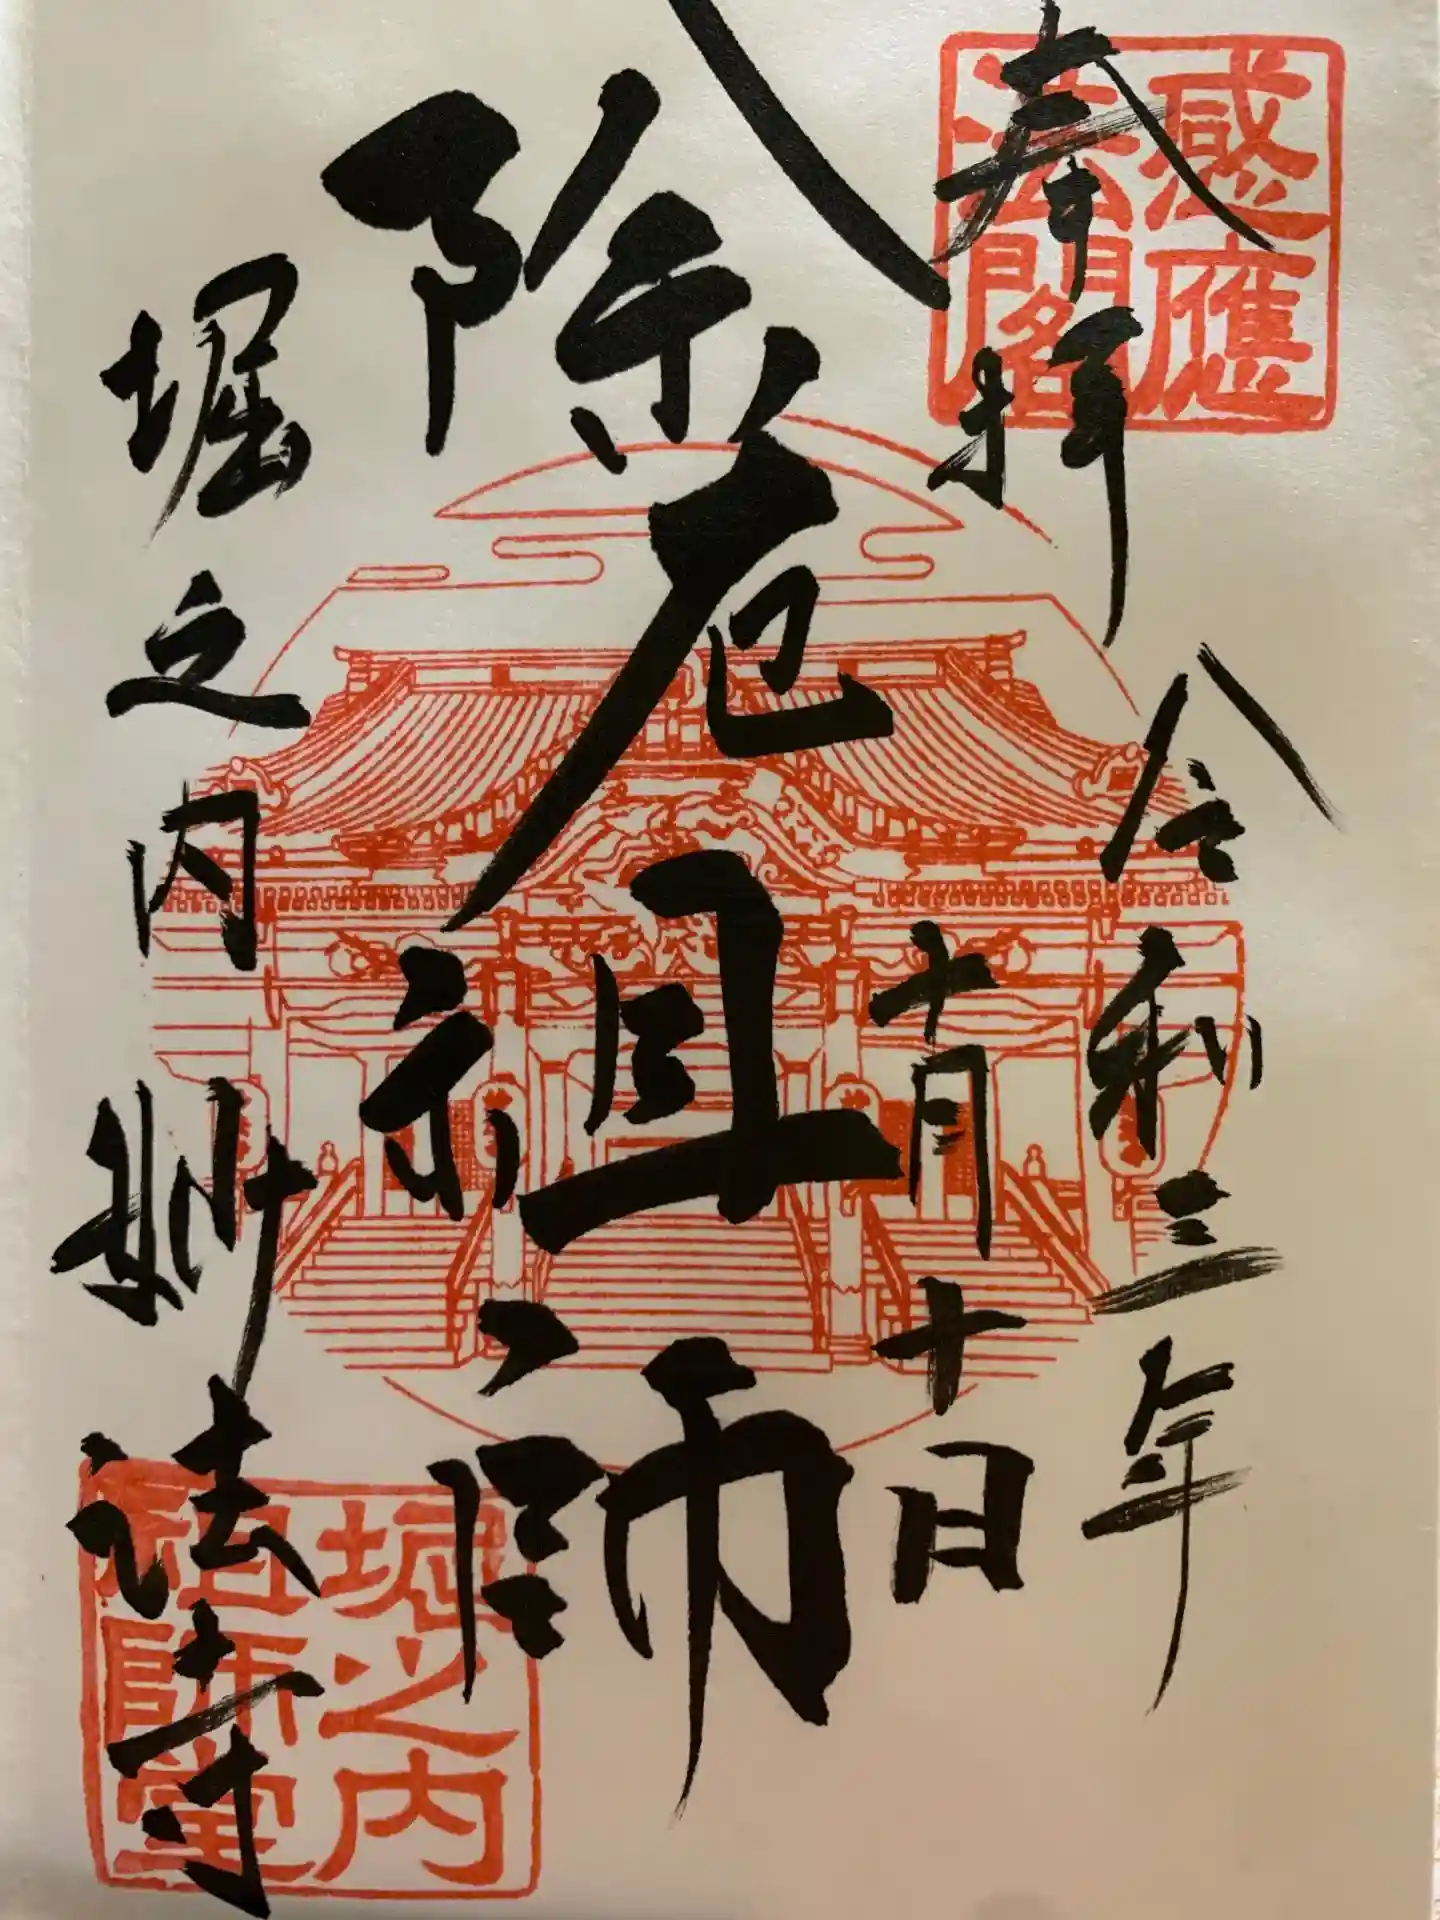 奉拝
令和三年
十月十日
除厄祖師
堀之内妙法寺
感應
法閣
堀之内
祖師堂